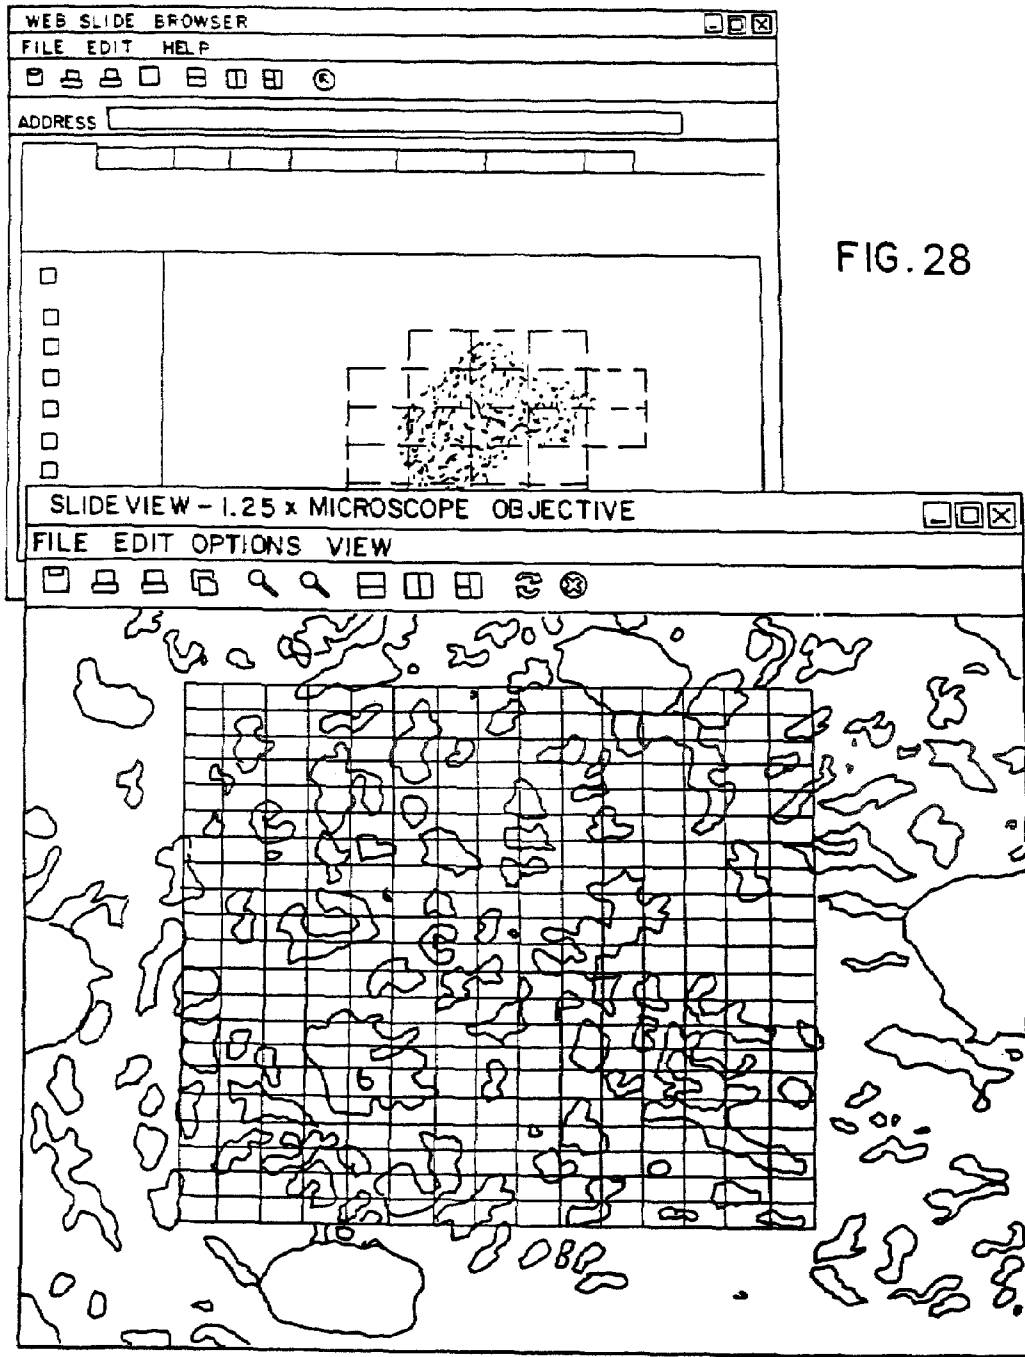 WEB SLIDE BROWSER
FILE EDIT HELP
ADDRESS
FIG. 28
SLIDEVIEW - 1.25 x MICROSCOPE OBJECTIVE
FILE EDIT OPTIONS VIEW